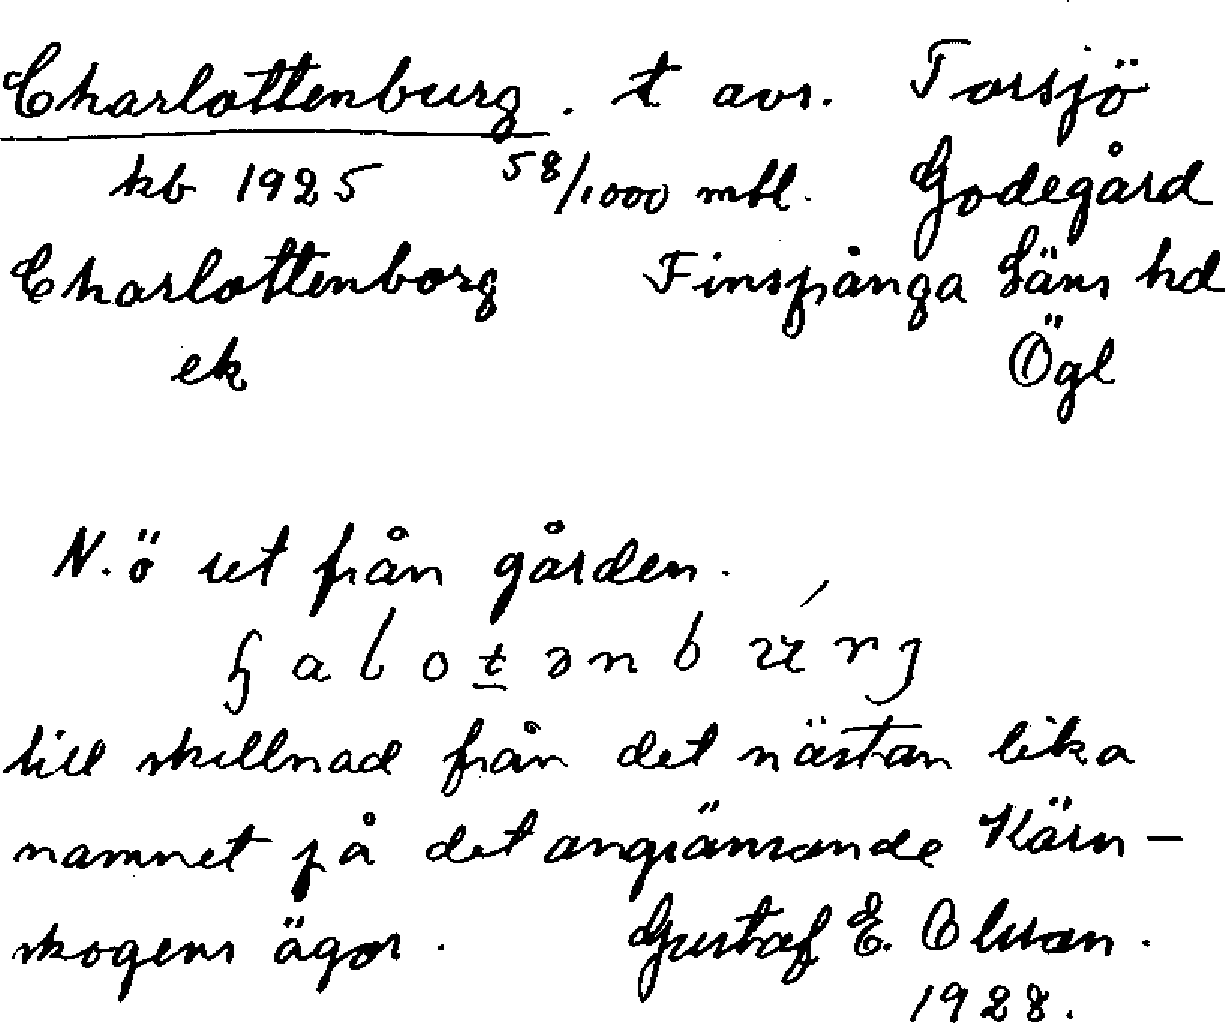 Charlottenburg. t avs. Torsjö
kb 1925 58/1000 mtl. Godegård
Charlottenborg Finspånga Läns hd
ek Ögl
N.ö ut från gården.
till skillnad från det nästan lika
namnet på det angränsande Kärn-
skogens ägor. Gustaf E. Olsson.
1928.